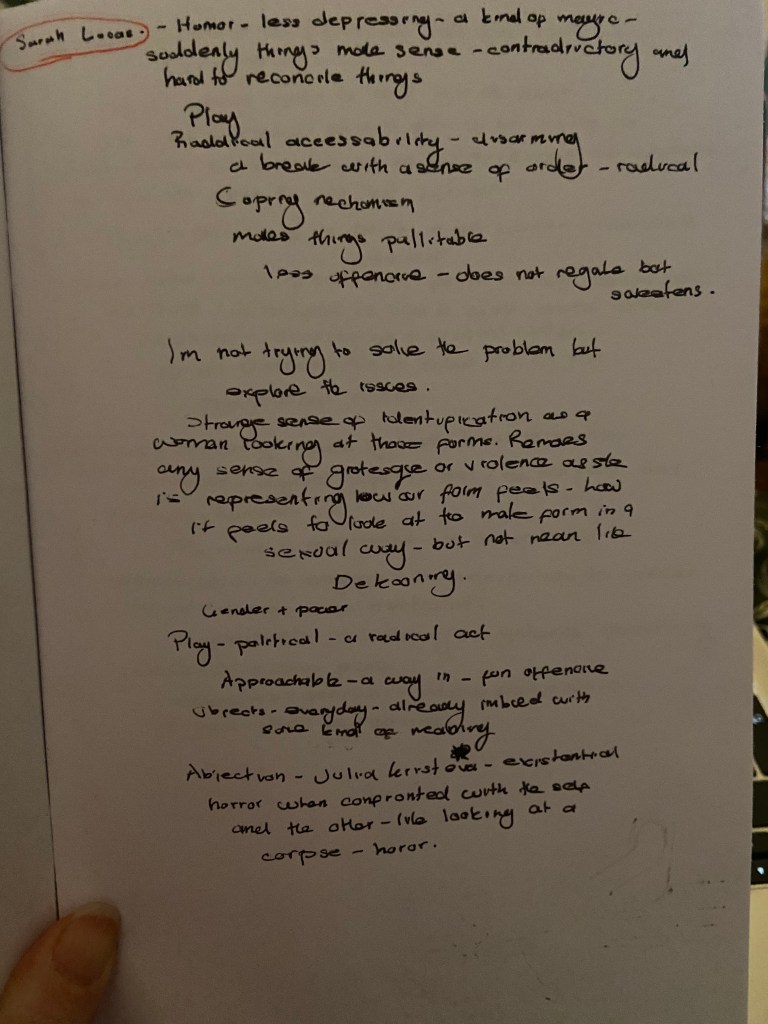 Sarah Lucas. - Humor - less depressing - a kind of magic -
suddenly things made sense - contradictory and
hard to reconcile things
Play
Raddical accessability - disarming
a break with a sense of order - radical
Coping mechanism
makes things pallitable
less offencive - does not negate but
sweetens.
Im not trying to solve the problem but
explore the issues.
Strange sense of identification as a
woman looking at those forms. Removes
any sense of grotesque or violence as she
is representing how our form feels - how
it feels to look at the male form in a
sexual way - but not mean like
Dekooning.
Gender + power
Play - political - a radical act
Approachable - a way in - fun offencive
Objects - everyday - already imbued with
some kind of meaning
Abjection - Julia Kristeva - existential
horror when confronted with the self
and the other - like looking at a
corpse - horor.